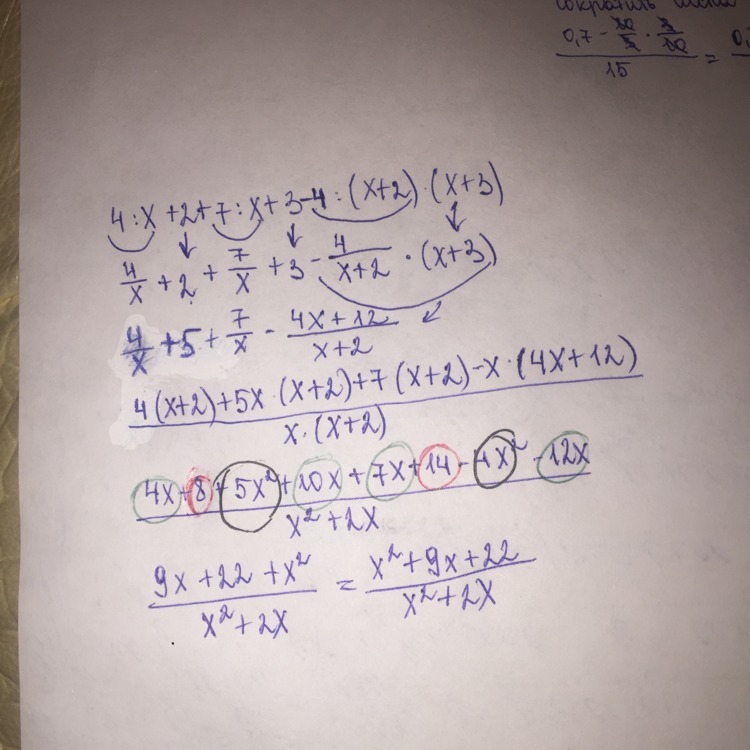 сократить
0,7 - 20/2 · 2/20 / 15 = 0,
4 : x + 2 + 7 : x + 3 - 4 : (x+2) · (x+3)
4/x + 2 + 7/x + 3 - 4/(x+2) · (x+3)
4/x + 5 + 7/x - (4x+12)/(x+2)
4(x+2)+5x·(x+2)+7(x+2)-x·(4x+12)
x·(x+2)
4x+8+5x²+10x+7x+14-4x²-12x
x²+2x
(9x+22+x²)/(x²+2x) = (x²+9x+22)/(x²+2x)